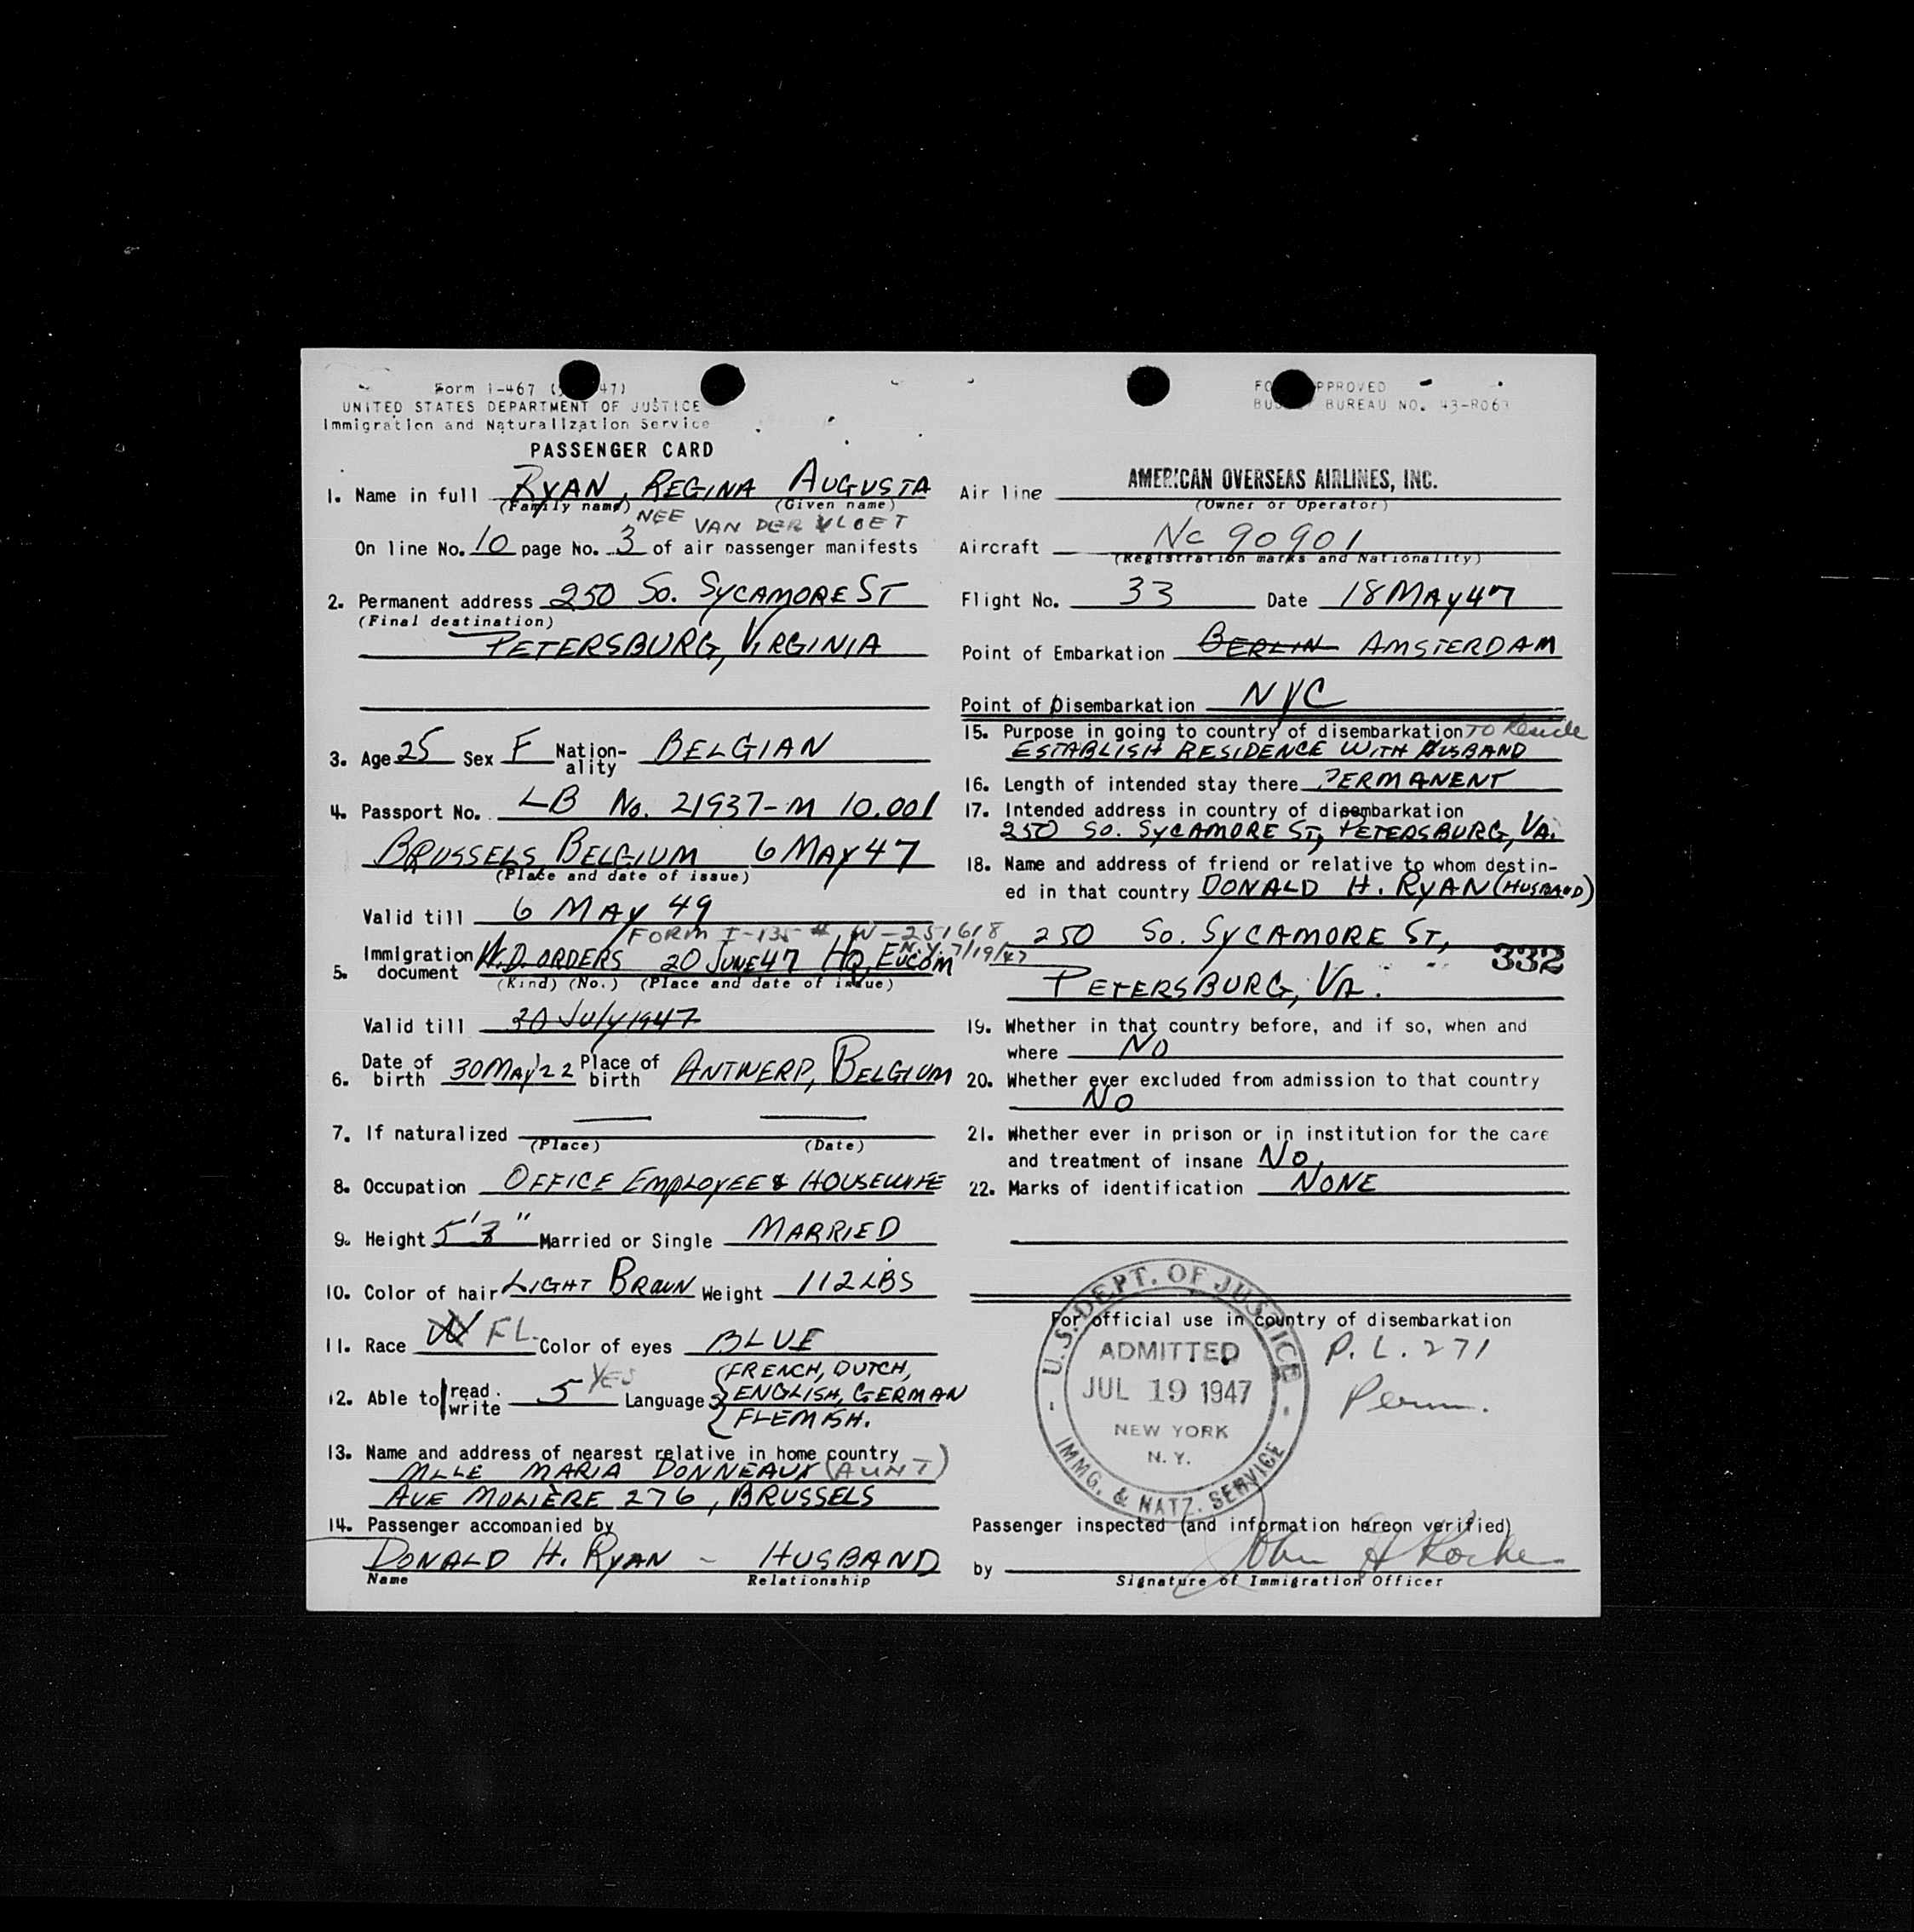 Form I-467 ( 47)
UNITED STATES DEPARTMENT OF JUSTICE
Immigration and Naturalization Service
PASSENGER CARD
1. Name in full RYAN, REGINA AUGUSTA
(Family name) (Given name)
NEE VAN DER VLOET
On line No. 10 page No. 3 of air passenger manifests
2. Permanent address 250 So. SYCAMORE ST
(Final destination)
PETERSBURG, VIRGINIA
3. Age 25 Sex F Nation-ality BELGIAN
4. Passport No. LB No. 21937-M 10.001
BRUSSELS, BELGIUM 6 MAY 47
(Place and date of issue)
Valid till 6 MAY 49
FORM I-135 # W-251618
N.Y. 7/19/47
5. Immigration document W.D. ORDERS 20 JUNE 47 HQ, EUCOM
(Kind) (No.) (Place and date of issue)
Valid till 20 JULY 1947
6. Date of birth 30 MAY '22 Place of birth ANTWERP, BELGIUM
7. If naturalized — —
(Place) (Date)
8. Occupation OFFICE EMPLOYEE & HOUSEWIFE
9. Height 5' " Married or Single MARRIED
10. Color of hair LIGHT BROWN Weight 112 LBS
11. Race W FL. Color of eyes BLUE
12. Able to read write 5 YES Languages FRENCH, DUTCH,
ENGLISH, GERMAN
FLEMISH.
13. Name and address of nearest relative in home country
MLLE MARIA DONNEAUX (AUNT)
AVE MOLIÈRE 276, BRUSSELS
14. Passenger accompanied by
DONALD H. RYAN - HUSBAND
Name Relationship
FO APPROVED
BU BUREAU NO. 43-R063
Air line AMERICAN OVERSEAS AIRLINES, INC.
(Owner or Operator)
Aircraft NC 90901
(Registration marks and Nationality)
Flight No. 33 Date 18 MAY 47
Point of Embarkation BERLIN AMSTERDAM
Point of Disembarkation NYC
15. Purpose in going to country of disembarkation TO Reside
ESTABLISH RESIDENCE WITH HUSBAND
16. Length of intended stay there PERMANENT
17. Intended address in country of disembarkation
250 So. SYCAMORE ST, PETERSBURG, VA.
18. Name and address of friend or relative to whom destin-
ed in that country DONALD H. RYAN (HUSBAND)
250 So. SYCAMORE ST,
332
PETERSBURG, VA.
19. Whether in that country before, and if so, when and
where NO
20. Whether ever excluded from admission to that country
NO
21. Whether ever in prison or in institution for the care
and treatment of insane NO.
22. Marks of identification NONE
For official use in country of disembarkation
U.S. DEPT. OF JUSTICE
ADMITTED
JUL 19 1947
NEW YORK
N. Y.
IMMG. & NATZ. SERVICE
P.L. 271
Perm.
Passenger inspected (and information hereon verified)
by John A
Signature of Immigration Officer